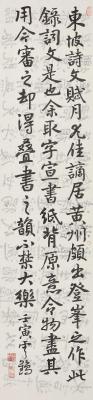 東坡詩文賦月尤佳謫居黄州頗出登峯之作此
錄詞文是也余取字宣書紙背原意令物盡其
用今審之却得疊書之韻不禁大樂壬寅